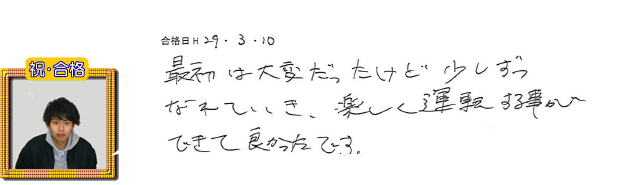 合格日H 29・3・10
祝・合格
最初は大変だったけど少しずつ
なれていき、楽しく運転する事が
できて良かったです。